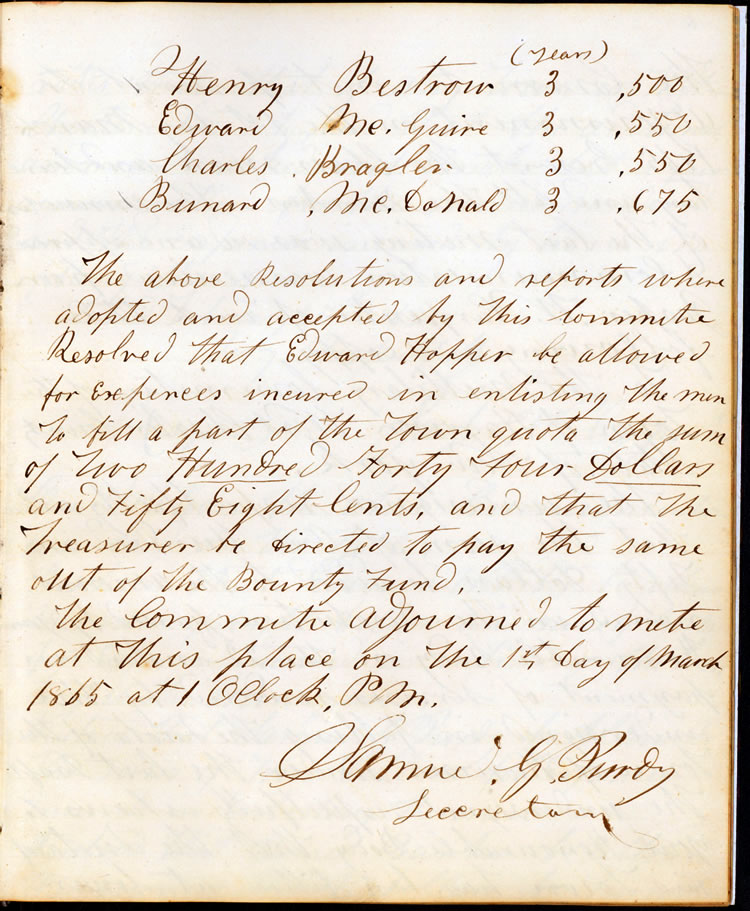 (Years)
Henry Bestrow 3 ,500
Edward Mc. Guire 3 ,550
Charles , Bragler 3 ,550
Bunard , Mc. Donald 3 ,675
The above Resolutions and reports where
adopted and accepted by this Committe
Resolved that Edward Hopper be allowed
for Expences incured in enlisting the men
to fill a part of the Town quota the sum
of Two Hundred Forty Four Dollars
and Fifty Eight Cents, and that the
Treasurer be directed to pay the same
out of the Bounty Fund.
The Committe adjourned to mete
at this place on the 1st Day of March
1865 at 1 OClock, P.M.
Samuel G Purdy
Seccretary